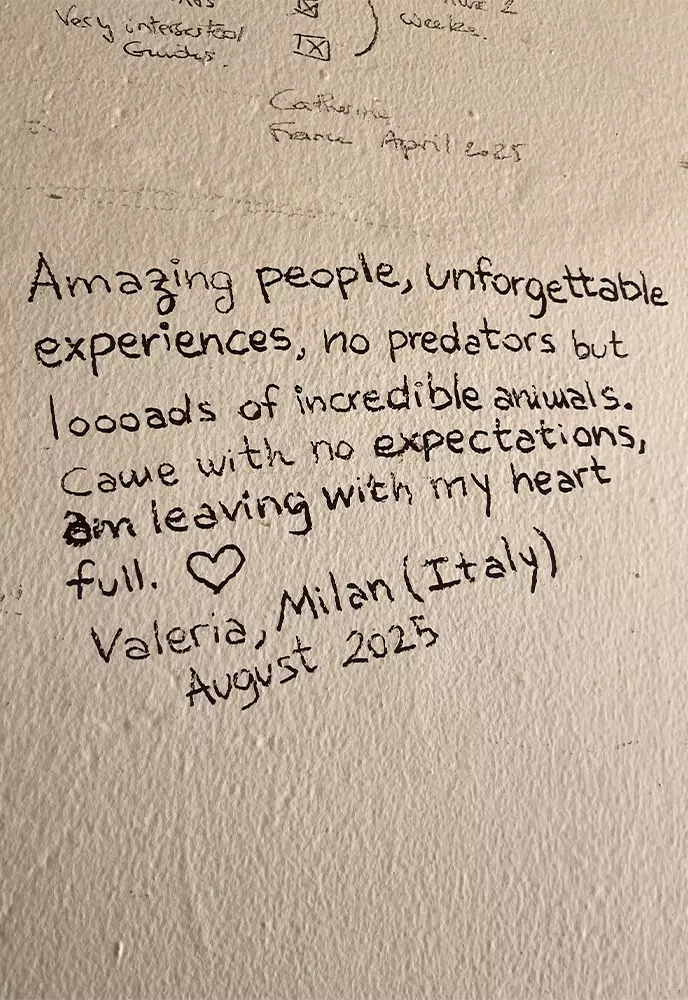 Very
Guides.
weeks.
Catherine
France April 2025
Amazing people, unforgettable
experiences, no predators but
loooads of incredible animals.
Came with no expectations,
am leaving with my heart
full. ♡
Valeria, Milan (Italy)
August 2025